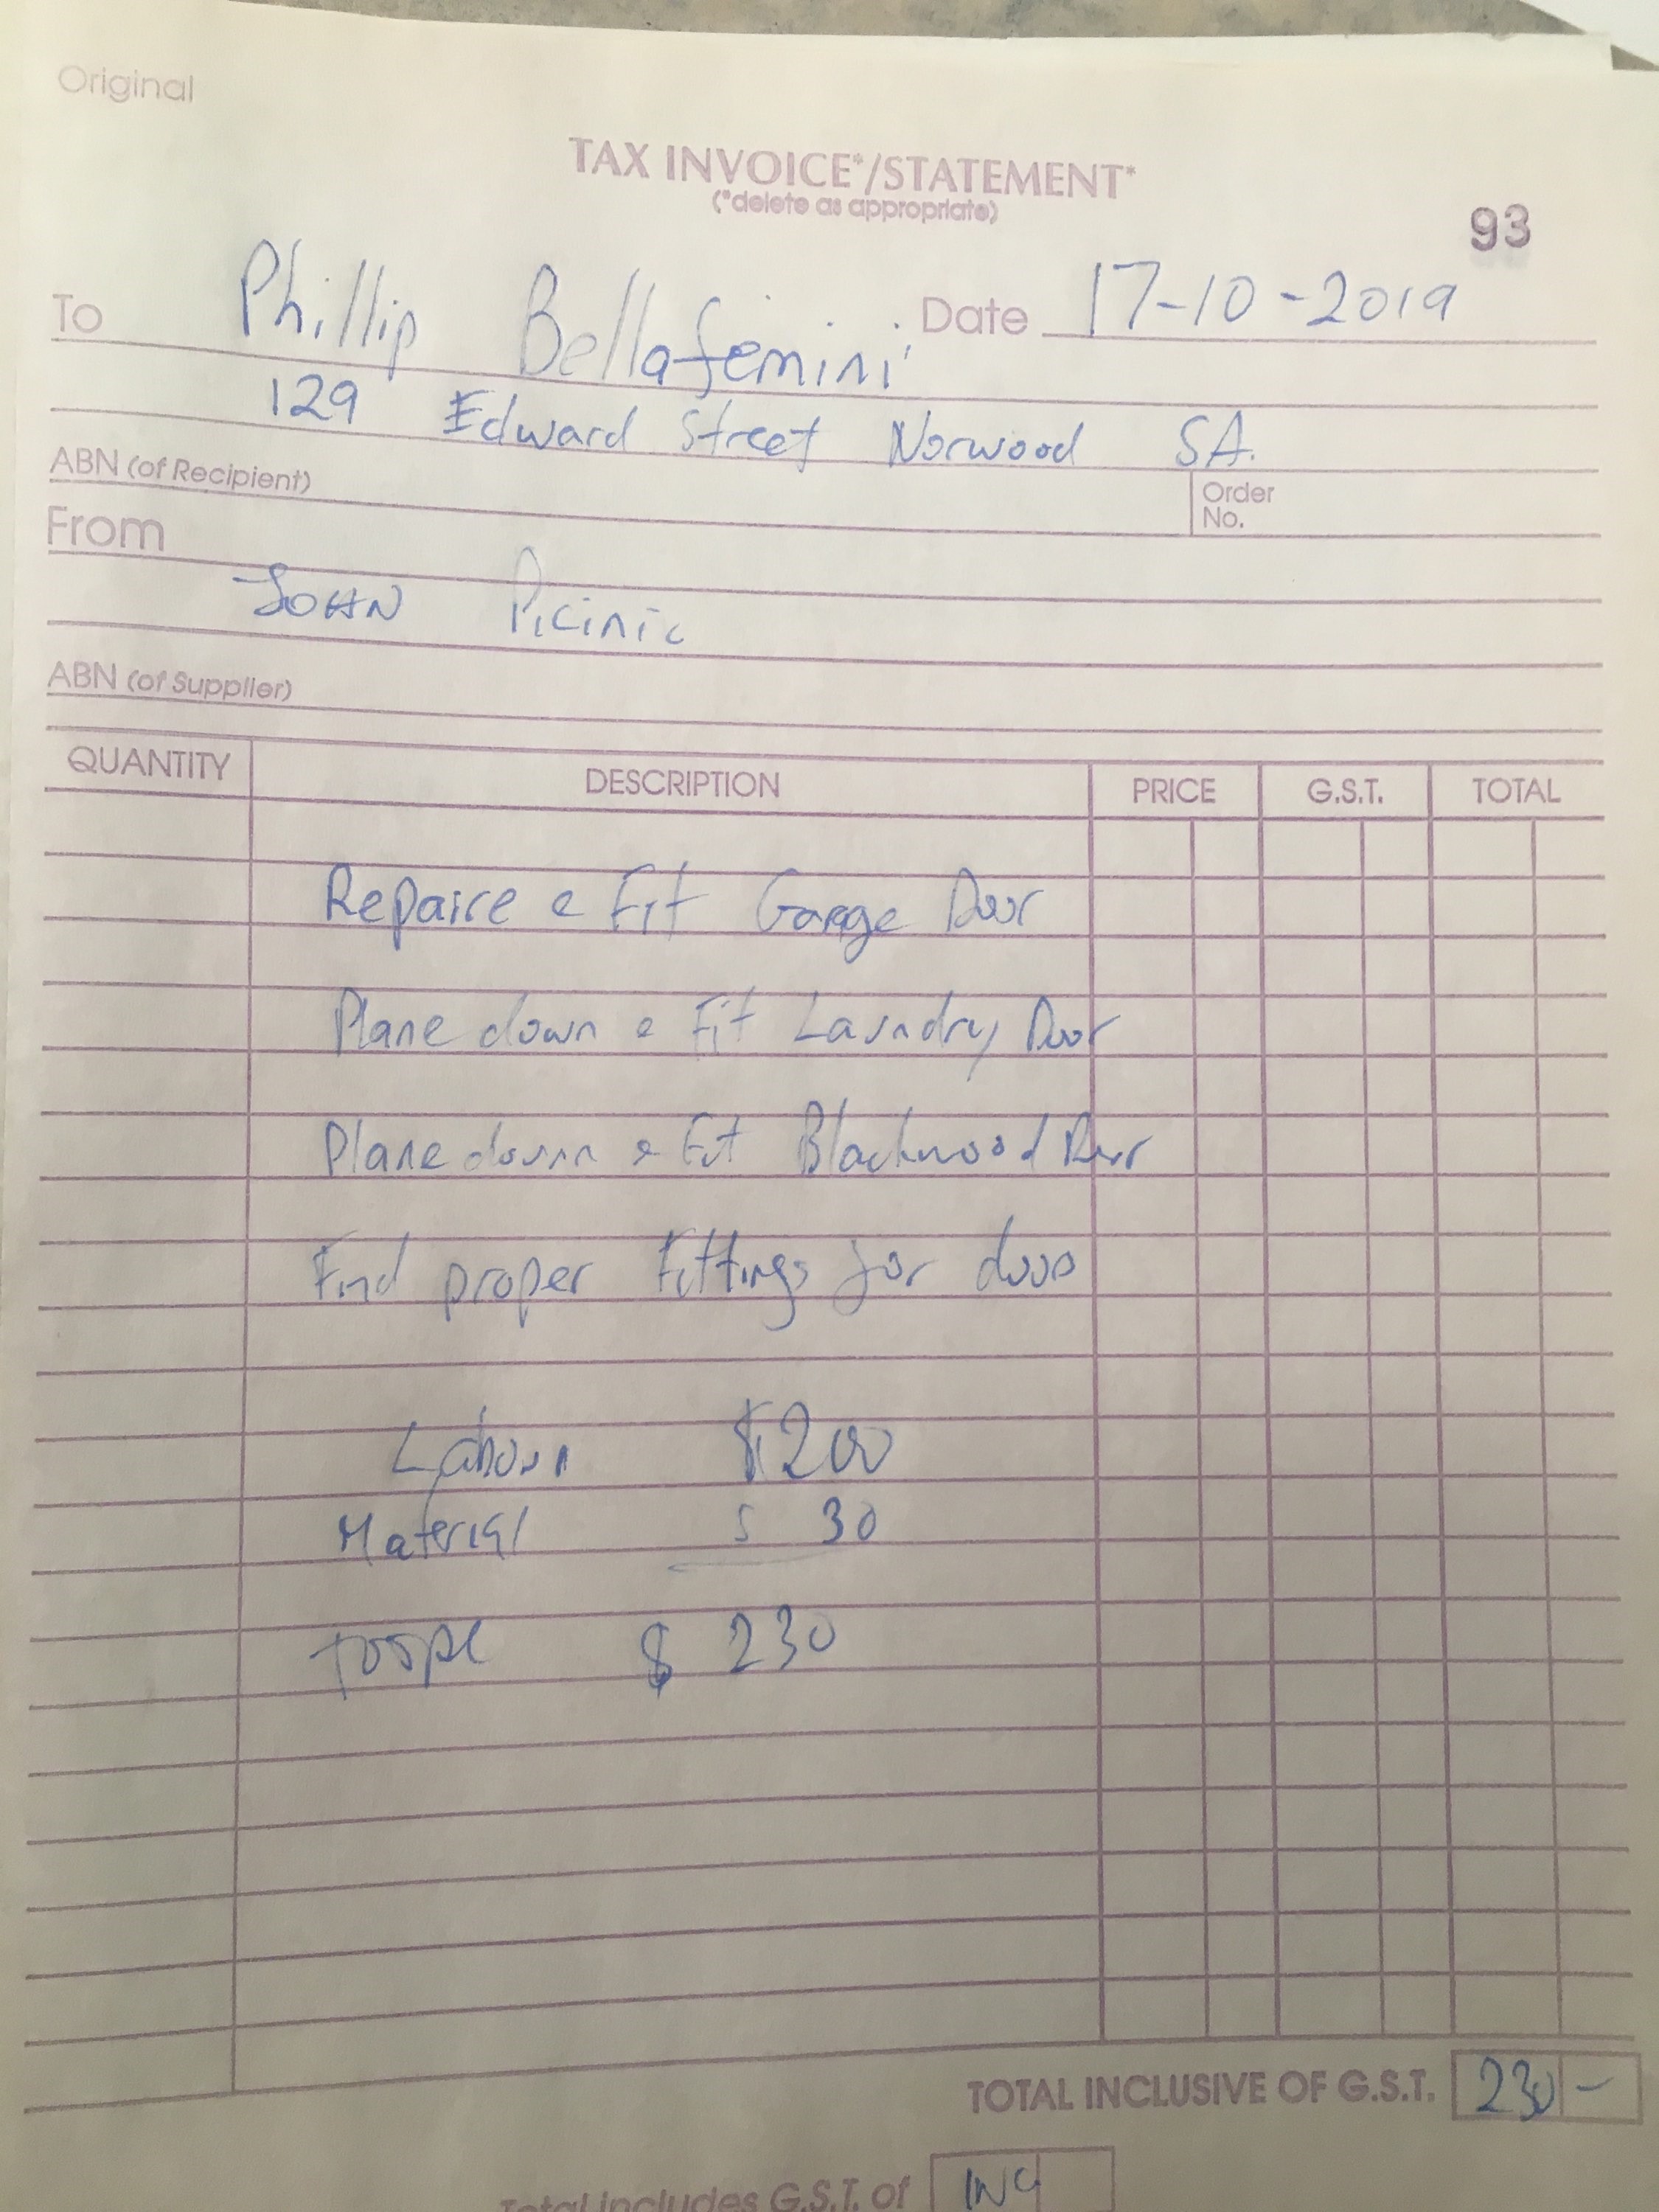 Original
TAX INVOICE*/STATEMENT*
(*delete as appropriate)
93
To Phillip Bellafemini Date 17-10-2019
129 Edward Street Norwood SA.
ABN (of Recipient)
Order No.
From
JOHN Picinic
ABN (of Supplier)
QUANTITY DESCRIPTION PRICE G.S.T. TOTAL
Repaire e Fit Garage Door
Plane down e Fit Laundry Door
Plane down e Fit Blackwood Door
Find proper Fittings for door
Labour $200
Material $ 30
$ 230
TOTAL INCLUSIVE OF G.S.T. 230 -
Total includes G.S.T. of